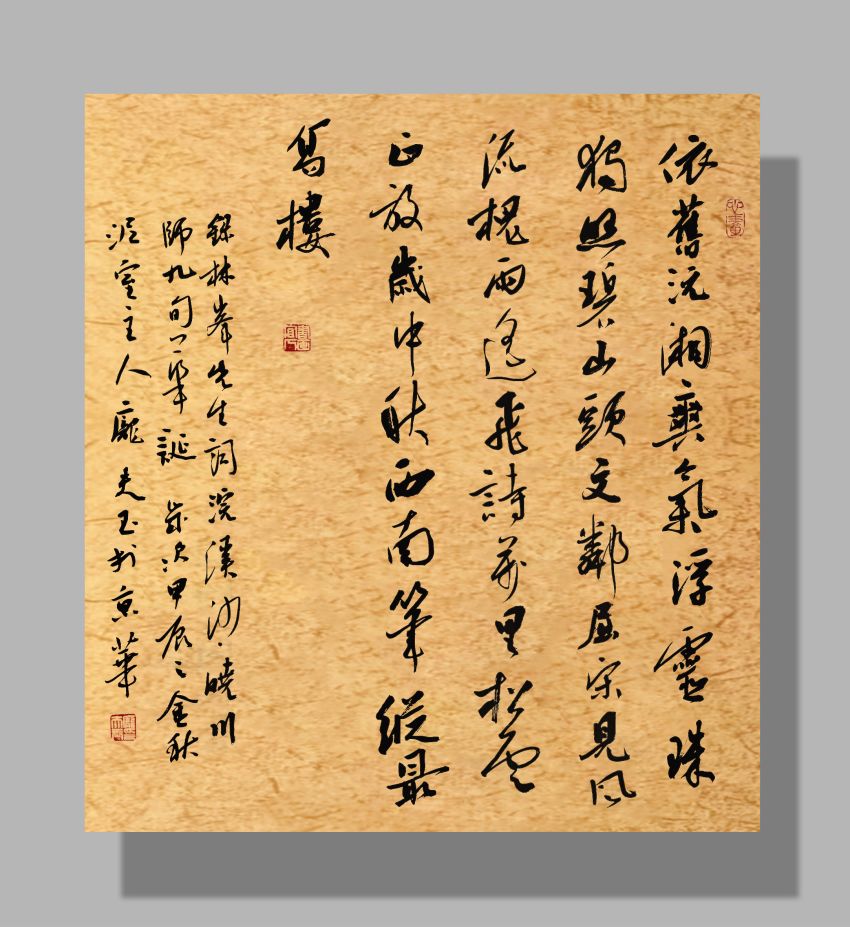 依舊沅湘爽氣浮靈珠
獨照碧山頭文鄰屈宋見風
流槐雨遙飛詩萬里松雲
正放歲中秋西南筆縱最
高樓
錄林峯先生詞浣溪沙·曉川
師九旬之華誕 歲次甲辰之金秋
室主人龐夫玉於京華